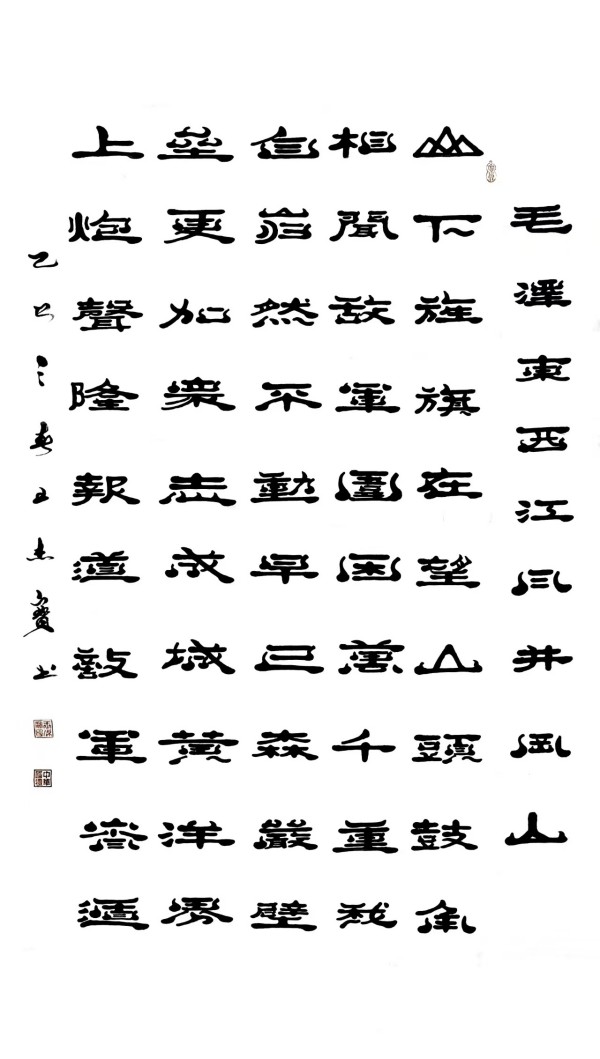 毛澤東西江月井岡山
山下旌旗在望山頭鼓角
相聞敵軍圍困萬千重我
自岿然不動早已森嚴壁
壘更加衆志成城黃洋界
上炮聲隆報道敵軍宵遁
乙巳之春王杰寶书